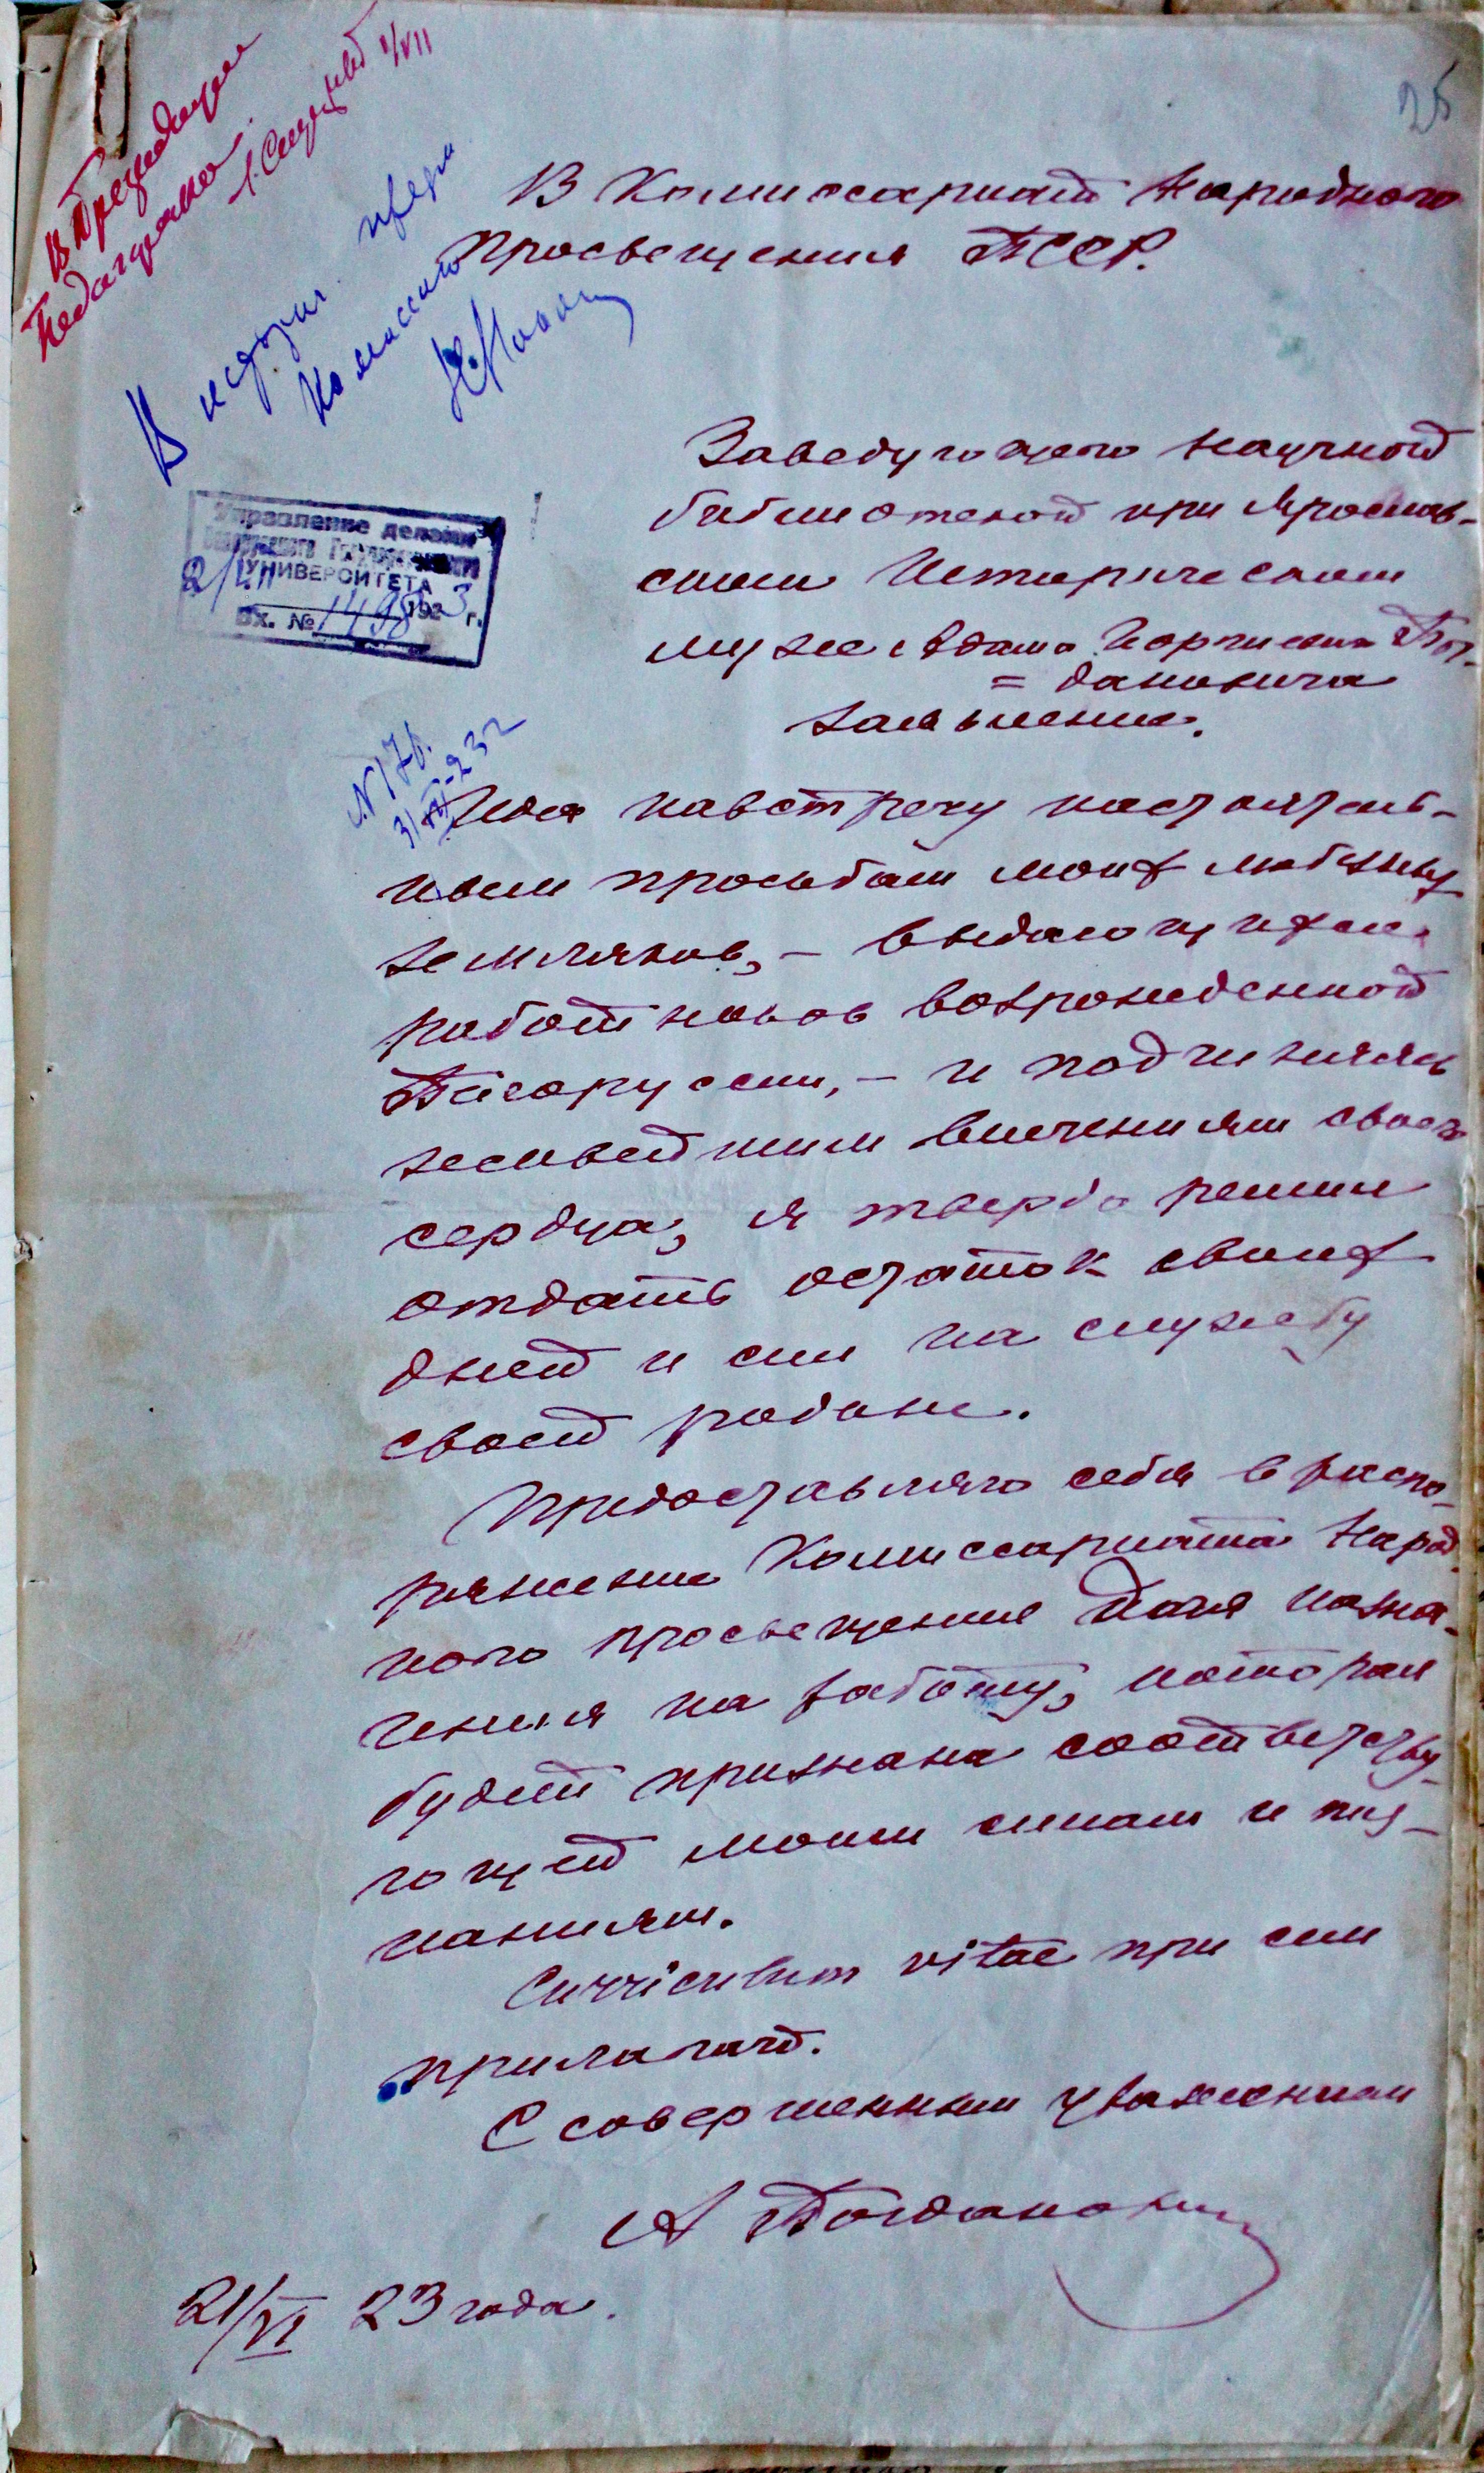 25
В Президиум
Педагфака.
1/VII
В истор.
комиссию
В Комиссариат Народного
Просвещения БССР.
Управление делами
УНИВЕРСИТЕТА
2/VII 1923 г.
Вх. № 1498
Заведующего научной
библиотекой при Ярослав-
ском Историческом
музее Адама Егоровича Бог-
= дановича
заявление.
№ 176.
31/VII-23 г
Идя навстречу настоятель-
ным просьбам моих любезных
земляков, – выдающихся
работников возрожденной
Белоруссии, – и подчиняясь
влечениям своего
сердца, я твердо решил
отдать остаток своих
дней и сил на службу
своей родине.
Предоставляю себя в распо-
ряжение Комиссариата Народ-
ного просвещения для назна-
чения на работу, которая
будет признана соответству-
ющей моим силам и поз-
наниям.
Curriculum vitae при сем
прилагаю.
С совершенным уважением
А Богданович
21/VI 23 года.